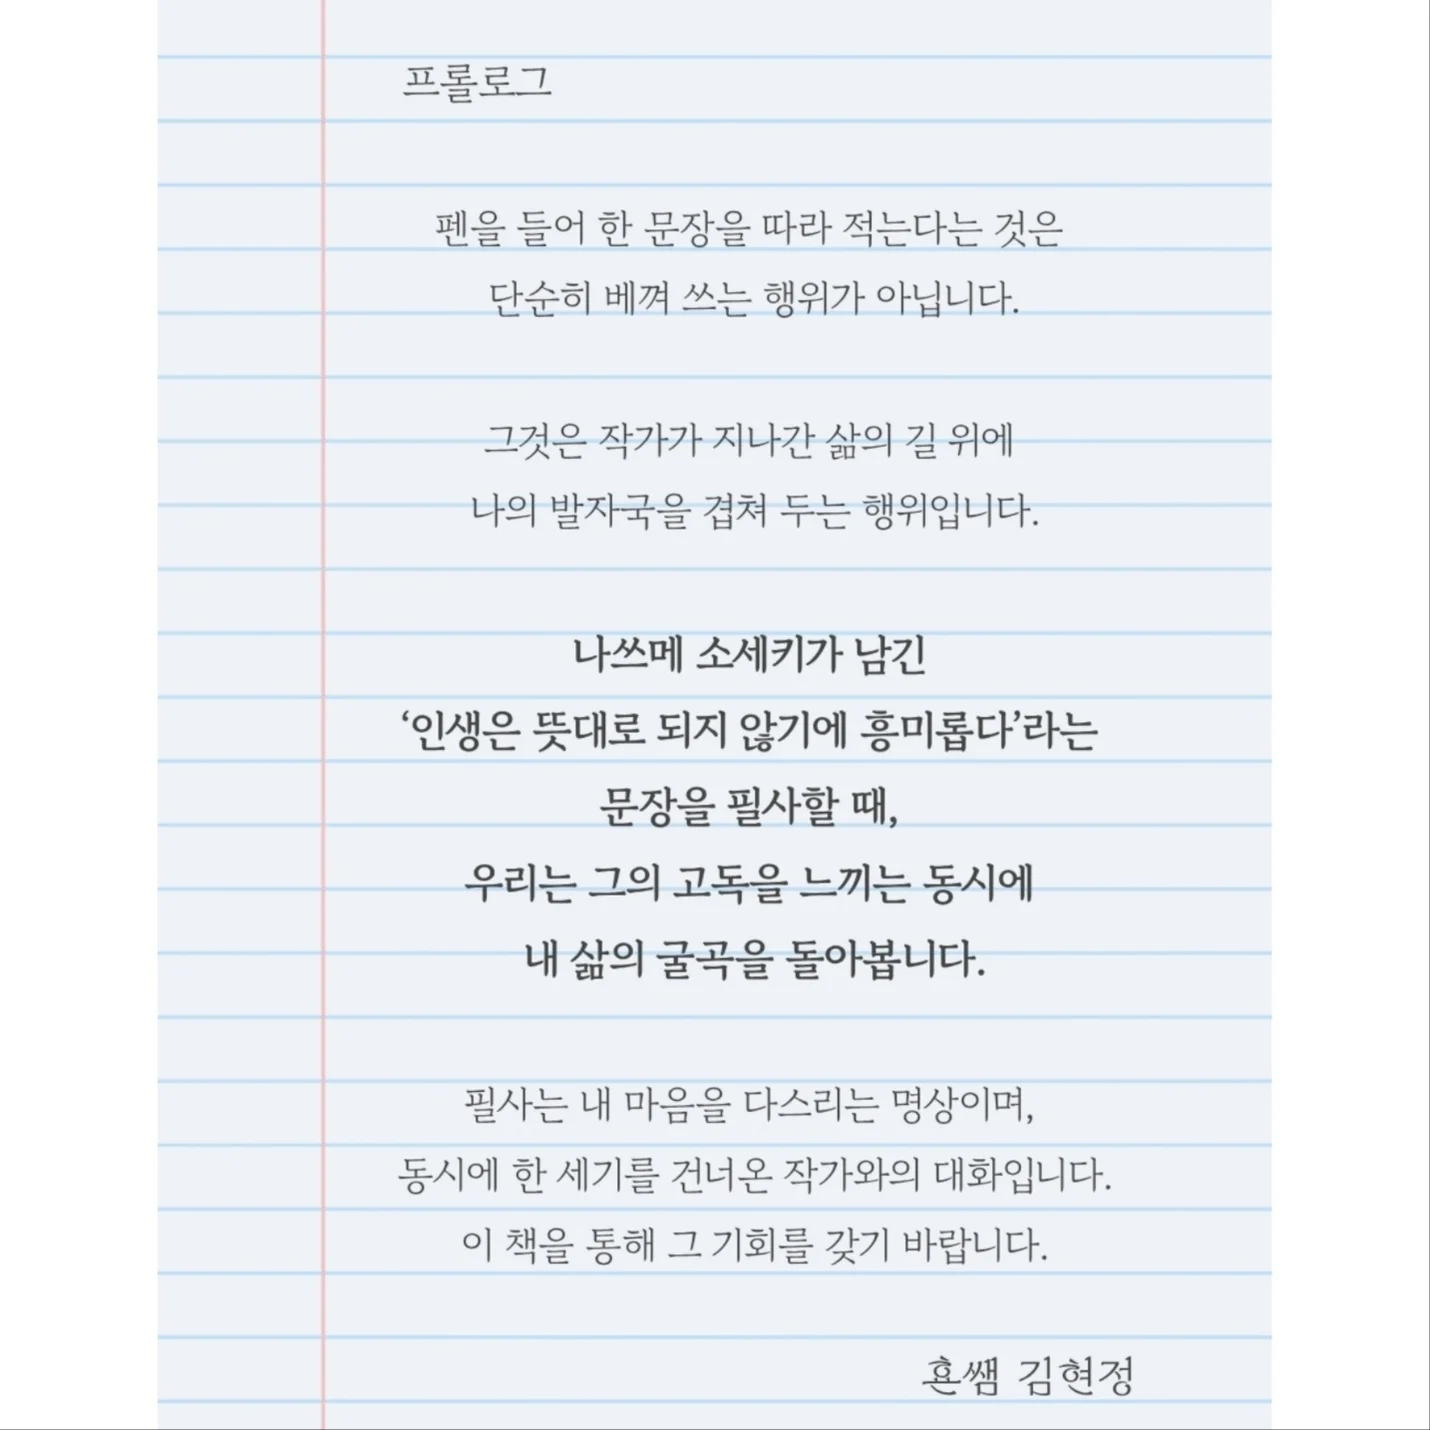 프롤로그
펜을 들어 한 문장을 따라 적는다는 것은
단순히 베껴 쓰는 행위가 아닙니다.
그것은 작가가 지나간 삶의 길 위에
나의 발자국을 겹쳐 두는 행위입니다.
나쓰메 소세키가 남긴
‘인생은 뜻대로 되지 않기에 흥미롭다’라는
문장을 필사할 때,
우리는 그의 고독을 느끼는 동시에
내 삶의 굴곡을 돌아봅니다.
필사는 내 마음을 다스리는 명상이며,
동시에 한 세기를 건너온 작가와의 대화입니다.
이 책을 통해 그 기회를 갖기 바랍니다.
횬쌤 김현정